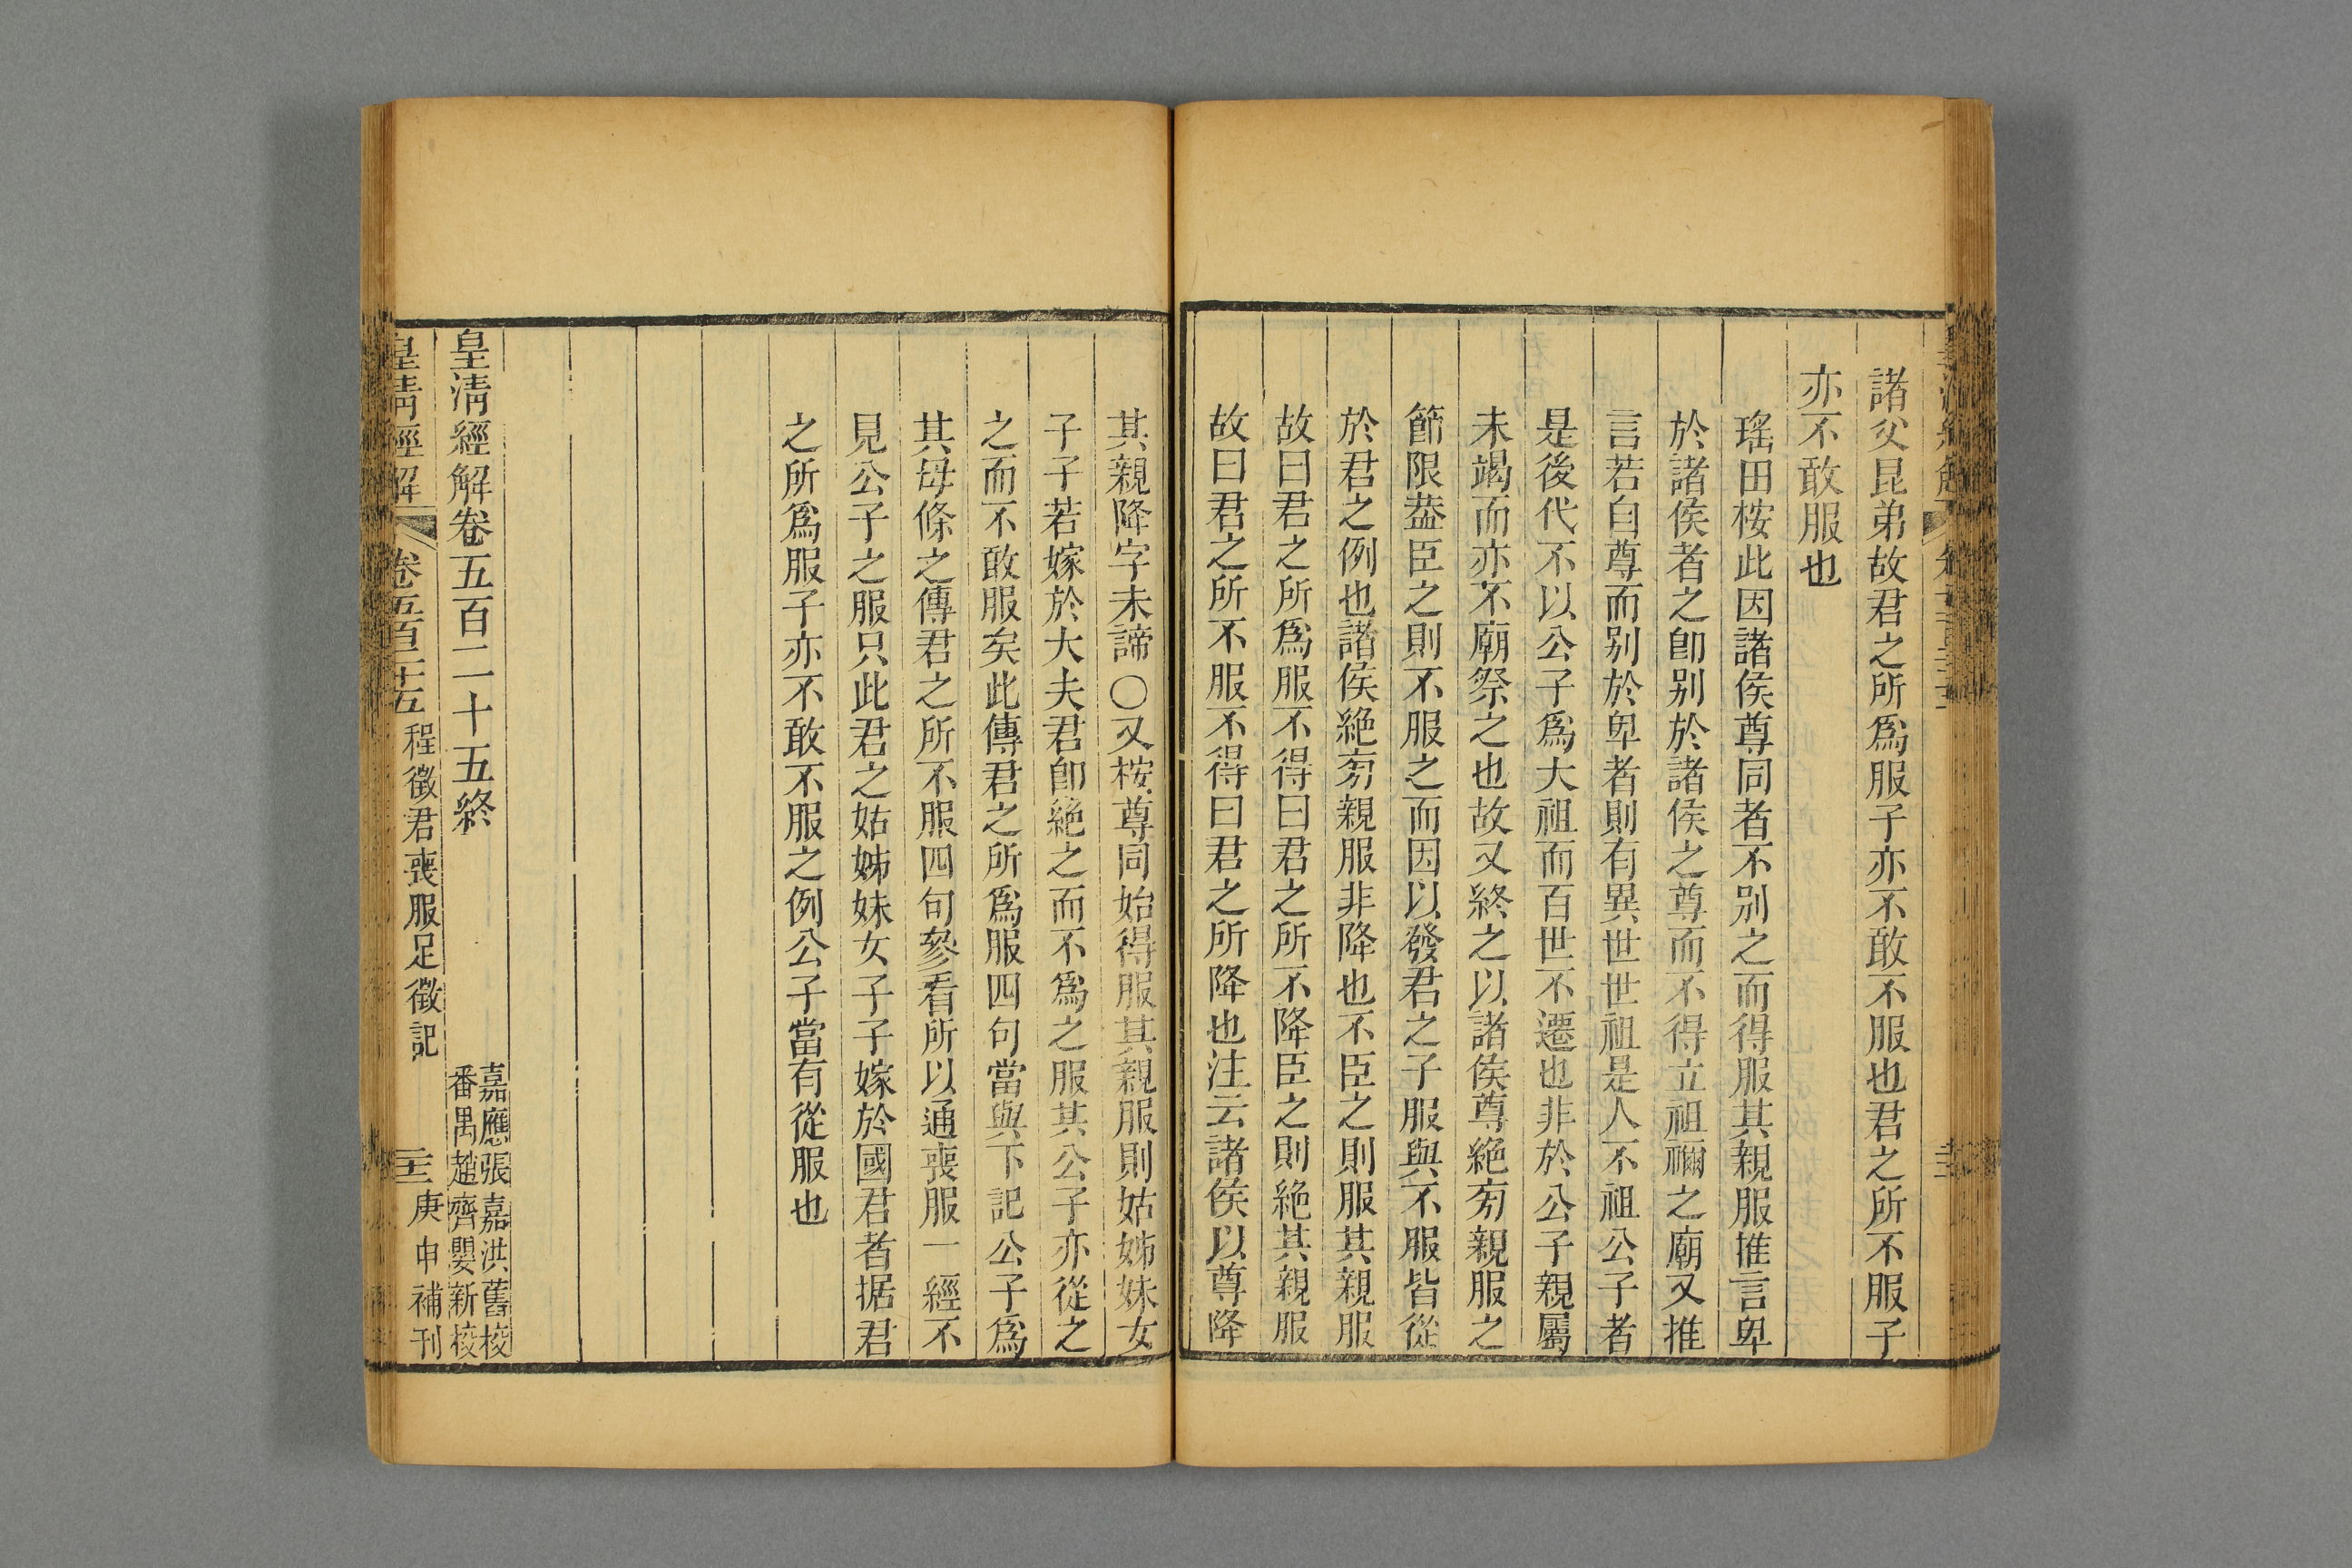 諸父昆弟故君之所爲服子亦不敢不服也君之所不服子
亦不敢服也
瑤田桉此因諸侯尊同者不别之而得服其親服推言卑
於諸侯者之卽别於諸侯之尊而不得立祖禰之廟又推
言若自尊而别於卑者則有異世世祖是人不祖公子者
是後代不以公子爲大祖而百世不遷也非於公子親屬
未竭而亦不廟祭之也故又終之以諸侯尊絶旁親服之
節限葢臣之則不服之而因以發君之子服與不服皆從
於君之例也諸侯絶旁親服非降也不臣之則服其親服
故曰君之所爲服不得曰君之所不降臣之則絶其親服
故曰君之所不服不得曰君之所降也注云諸侯以尊降
其親降字未諦〇又桉尊同始得服其親服則姑姊妹女
子子若嫁於大夫君卽絶之而不爲之服其公子亦從之
之而不敢服矣此傳君之所爲服四句當與下記公子爲
其母條之傳君之所不服四句參看所以通喪服一經不
見公子之服只此君之姑姊妹女子子嫁於國君者据君
之所爲服子亦不敢不服之例公子當有從服也
皇淸經解卷五百二十五終
嘉應張嘉洪舊校
番禺趙齊嬰新校
皇淸經解
卷五百二十五
程徵君喪服足徵記
庚申補刊